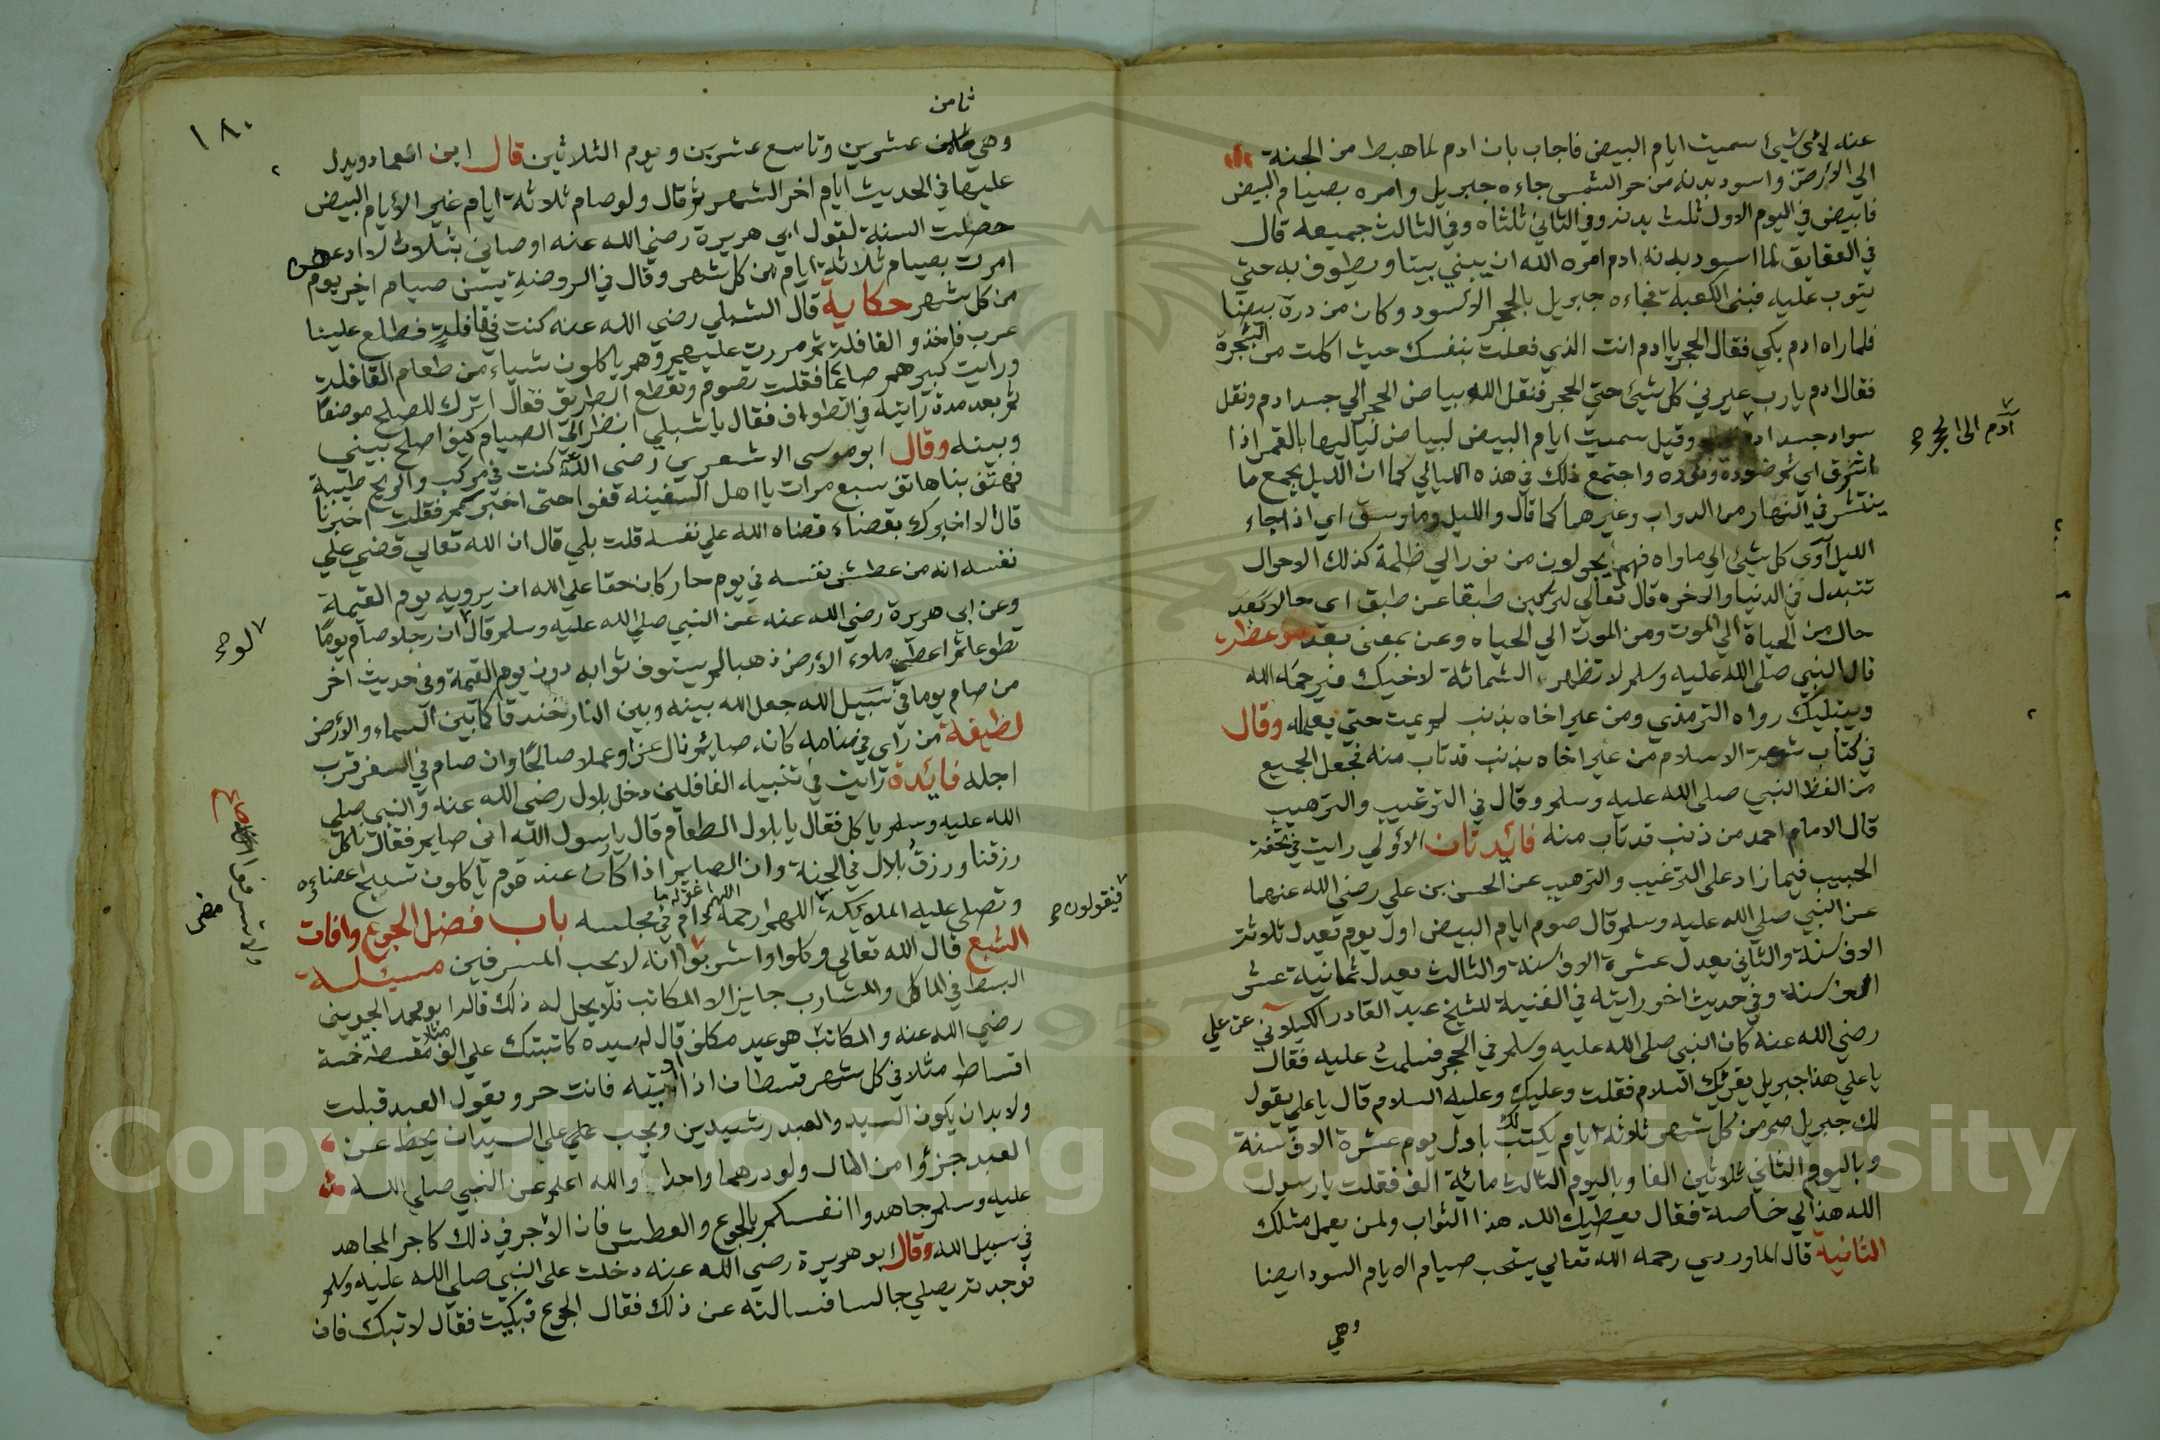 عنه لاي شيئ سميت ايام البيض فاجاب بان ادم لما هبط من الجنة
الي الارض واسود بدنه من حر الشمس جاءه جبريل وامره بصيام البيض
فابيض في اليوم الاول ثلث بدنه وفي الثاني ثلثاه وفي الثالث جميعه قال
في العقايق لما اسود بدنه ادم امره الله ان يبني بيتا ويطوف به حتي
يتوب عليه فبنى الكعبة فجاءه جبريل بالحجر الاسود وكان من درة بيضا
فلما راه ادم بكي فقال الحجر يا ادم انت الذي فعلت بنفسك حيث اكلت من الشجرة
فقال ادم يارب عيرني كل شيئ حتي الحجر فنقل الله بياض الحجر الي جسد ادم ونقل
سواد جسد ادم وقيل سميت ايام البيض لبياض لياليها بالقمر اذا
آدم الى الحجر صح
اتسق اي تم ضوءه ونوره واجتمع ذلك في هذه الليالي كما ان الليل يجمع ما
ينتشر في النهار من الدواب وغيرهما كما قال والليل وما وسق اي اذا جاء
الليل آوى كل شيئ الي ماواه فهم يحولون من نور الي ظلمة كذلك الاحوال
تتبدل في الدنيا والاخره قال تعالي لتركبن طبقا عن طبق اي حالا بعد
حال من الحياة الي الموت ومن الموت الي الحياه وعن بمعنى بعد موعظة
قال النبي صلى الله عليه وسلم لا تظهر الشماتة لاخيك فيرحمه الله
ويبتليك رواه الترمذي ومن عير اخاه بذنب لم يمت حتي يعمله وقال
في كتاب شرعة الاسلام من عير اخاه بذنب قد تاب منه فجعل الجميع
من الفظ النبي صلى الله عليه وسلم وقال في الترغيب والترهيب
قال الامام احمد من ذنب قد تاب منه فائدتان الاولي رايت في تحفة
الحبيب فيما زاد على الترغيب والترهيب عن الحسن بن علي رضي الله عنهما
عن النبي صلى الله عليه وسلم قال صوم ايام البيض اول يوم تعدل ثلاثة
الاف سنة والثاني يعدل عشرة الاف سنة والثالث يعدل ثمانية عشر
الف سنة وفي حديث اخر رايته في الغنية للشيخ عبد القادر الكيلاني عن علي
رضي الله عنه كان النبي صلى الله عليه وسلم في الحجر فسلمت عليه فقال
يا علي هذا جبريل يقرئك السلام فقلت وعليك وعليه السلام قال يا علي يقول
لك جبريل صم من كل شهر ثلاثة ايام يكتب لك باول يوم عشرة الاف سنة
وباليوم الثاني ثلاثين الفا وباليوم الثالث مائة الف فقلت يارسول
الله هذا لي خاصة فقال يعطيك الله هذا الثواب ولمن يعمل مثلك
الثانية قال الماوردي رحمه الله تعالي يستحب صيام الايام السود ايضا
وهي
١٨٠
ثامن
وهي عشرين وتاسع عشرين ويوم الثلاثين قال ابن العماد ويدل
عليها في الحديث ايام اخر الشهر ثم قال ولو صام ثلاثة ايام غير الايام البيض
حصلت السنة لقول ابي هريرة رضي الله عنه اوصاني بثلاث لا ادعهن
امرت بصيام ثلاثة ايام من كل شهر وقال في الروضة يسن صيام اخر يوم
من كل شهر حكاية قال الشبلي رضي الله عنه كنت في قافلة فطلع علينا
عرب فاخذو القافلة ثم مررت عليهم وهم ياكلون شياء من طعام القافلة
ورايت كبيرهم صائما فقلت تصوم وتقطع الطريق فقال اترك للصلح موضعا
ثم بعد مدة رايته في الطواف فقال يا شبلي انظر الي الصيام كيف اصلح بيني
وبينه وقال ابو موسى الاشعري رضي الله كنت في مركب والريح طيبة
فهتف بنا هاتف سبع مرات يا اهل السفينه قفوا حتى اخبركم فقلت اخبرنا
قال الا اخبرك بقضاء قضاه الله علي نفسه قلت بلي قال ان الله تعالي قضي علي
نفسه انه من عطش نفسه في يوم حار كان حقا علي الله ان يرويه يوم القيمة
وعن ابى هريرة رضي الله عنه عن النبي صلي الله عليه وسلم قال ان رجلا صام يوما
لو صح
تطوعا ثم اعطي ملاء الارض ذهبا لم يستوف ثوابه دون يوم القيمة وفي حديث اخر
من صام يوما في سبيل الله جعل الله بينه وبين النار خندقا كما بين السماء والارض
لطيفة من راى في منامه كانه صايم نال عزا وعملا صالحا وان صام في السفر قرب
اجله فائدة رايت في تنبيه الغافلين دخل بلال رضي الله عنه والنبي صلي
الله عليه وسلم ياكل فقال يا بلال الطعام قال يا رسول الله اني صايم فقال ناكل
رزقنا ورزق بلال في الجنة وان الصايم اذا كان عند قوم ياكلون تسبيح اعضاءه
وتصلي عليه الملايكة اللهم ارحمه مادام في مجلسه باب فضل الجوع وافات
اللهم اغفر له
فيقولون صح
الشبع قال الله تعالي وكلوا واشربوا انه لا يحب المسرفين مسيئلة
البسط في الماكل والمشارب جايز الا المكاتب فلا يحل له ذلك قاله ابو محمد الجويني
رضي الله عنه والمكاتب هو عبد مكلف قال له سيده كاتبتك علي الف مقسطة خمسة
مثلا
اقساط مثلا في كل شهر قسطا فاذا اديته فانت حر ويقول العبد قبلت
ولا بد ان يكون السيد والعبد رشيدين ويجب علي السيد ان يحط عن
العبد جزؤا من المال ولو درهما واحدا والله اعلم عن النبي صلي الله
عليه وسلم جاهدوا انفسكم بالجوع والعطش فان الاجر في ذلك كاجر المجاهد
في سبيل الله وقال ابو هريرة رضي الله عنه دخلت على النبي صلي الله عليه وسلم
فوجدته يصلي جالسا فسالته عن ذلك فقال الجوع فبكيت فقال لا تبك فان
Copyright © King Saud University
1957